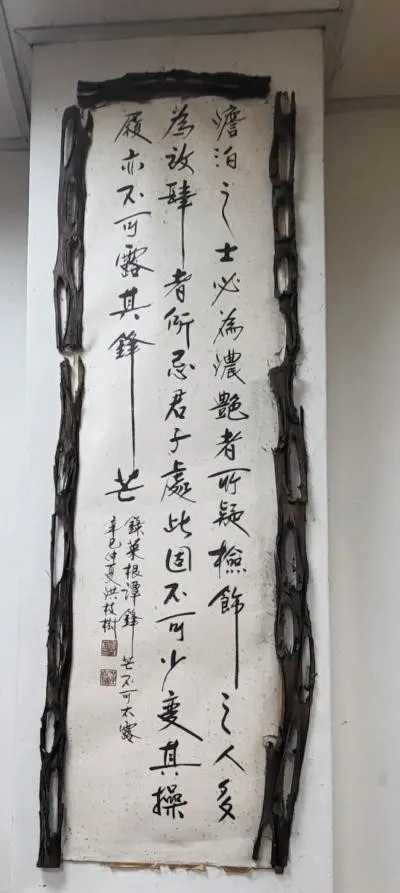 澹泊之士必為濃艷者所疑檢飾之人多
為放肆者所忌君子處此固不可少變其操
履亦不可露其鋒芒
錄菜根譚鋒芒不可太露
辛巳仲夏洪枝樹